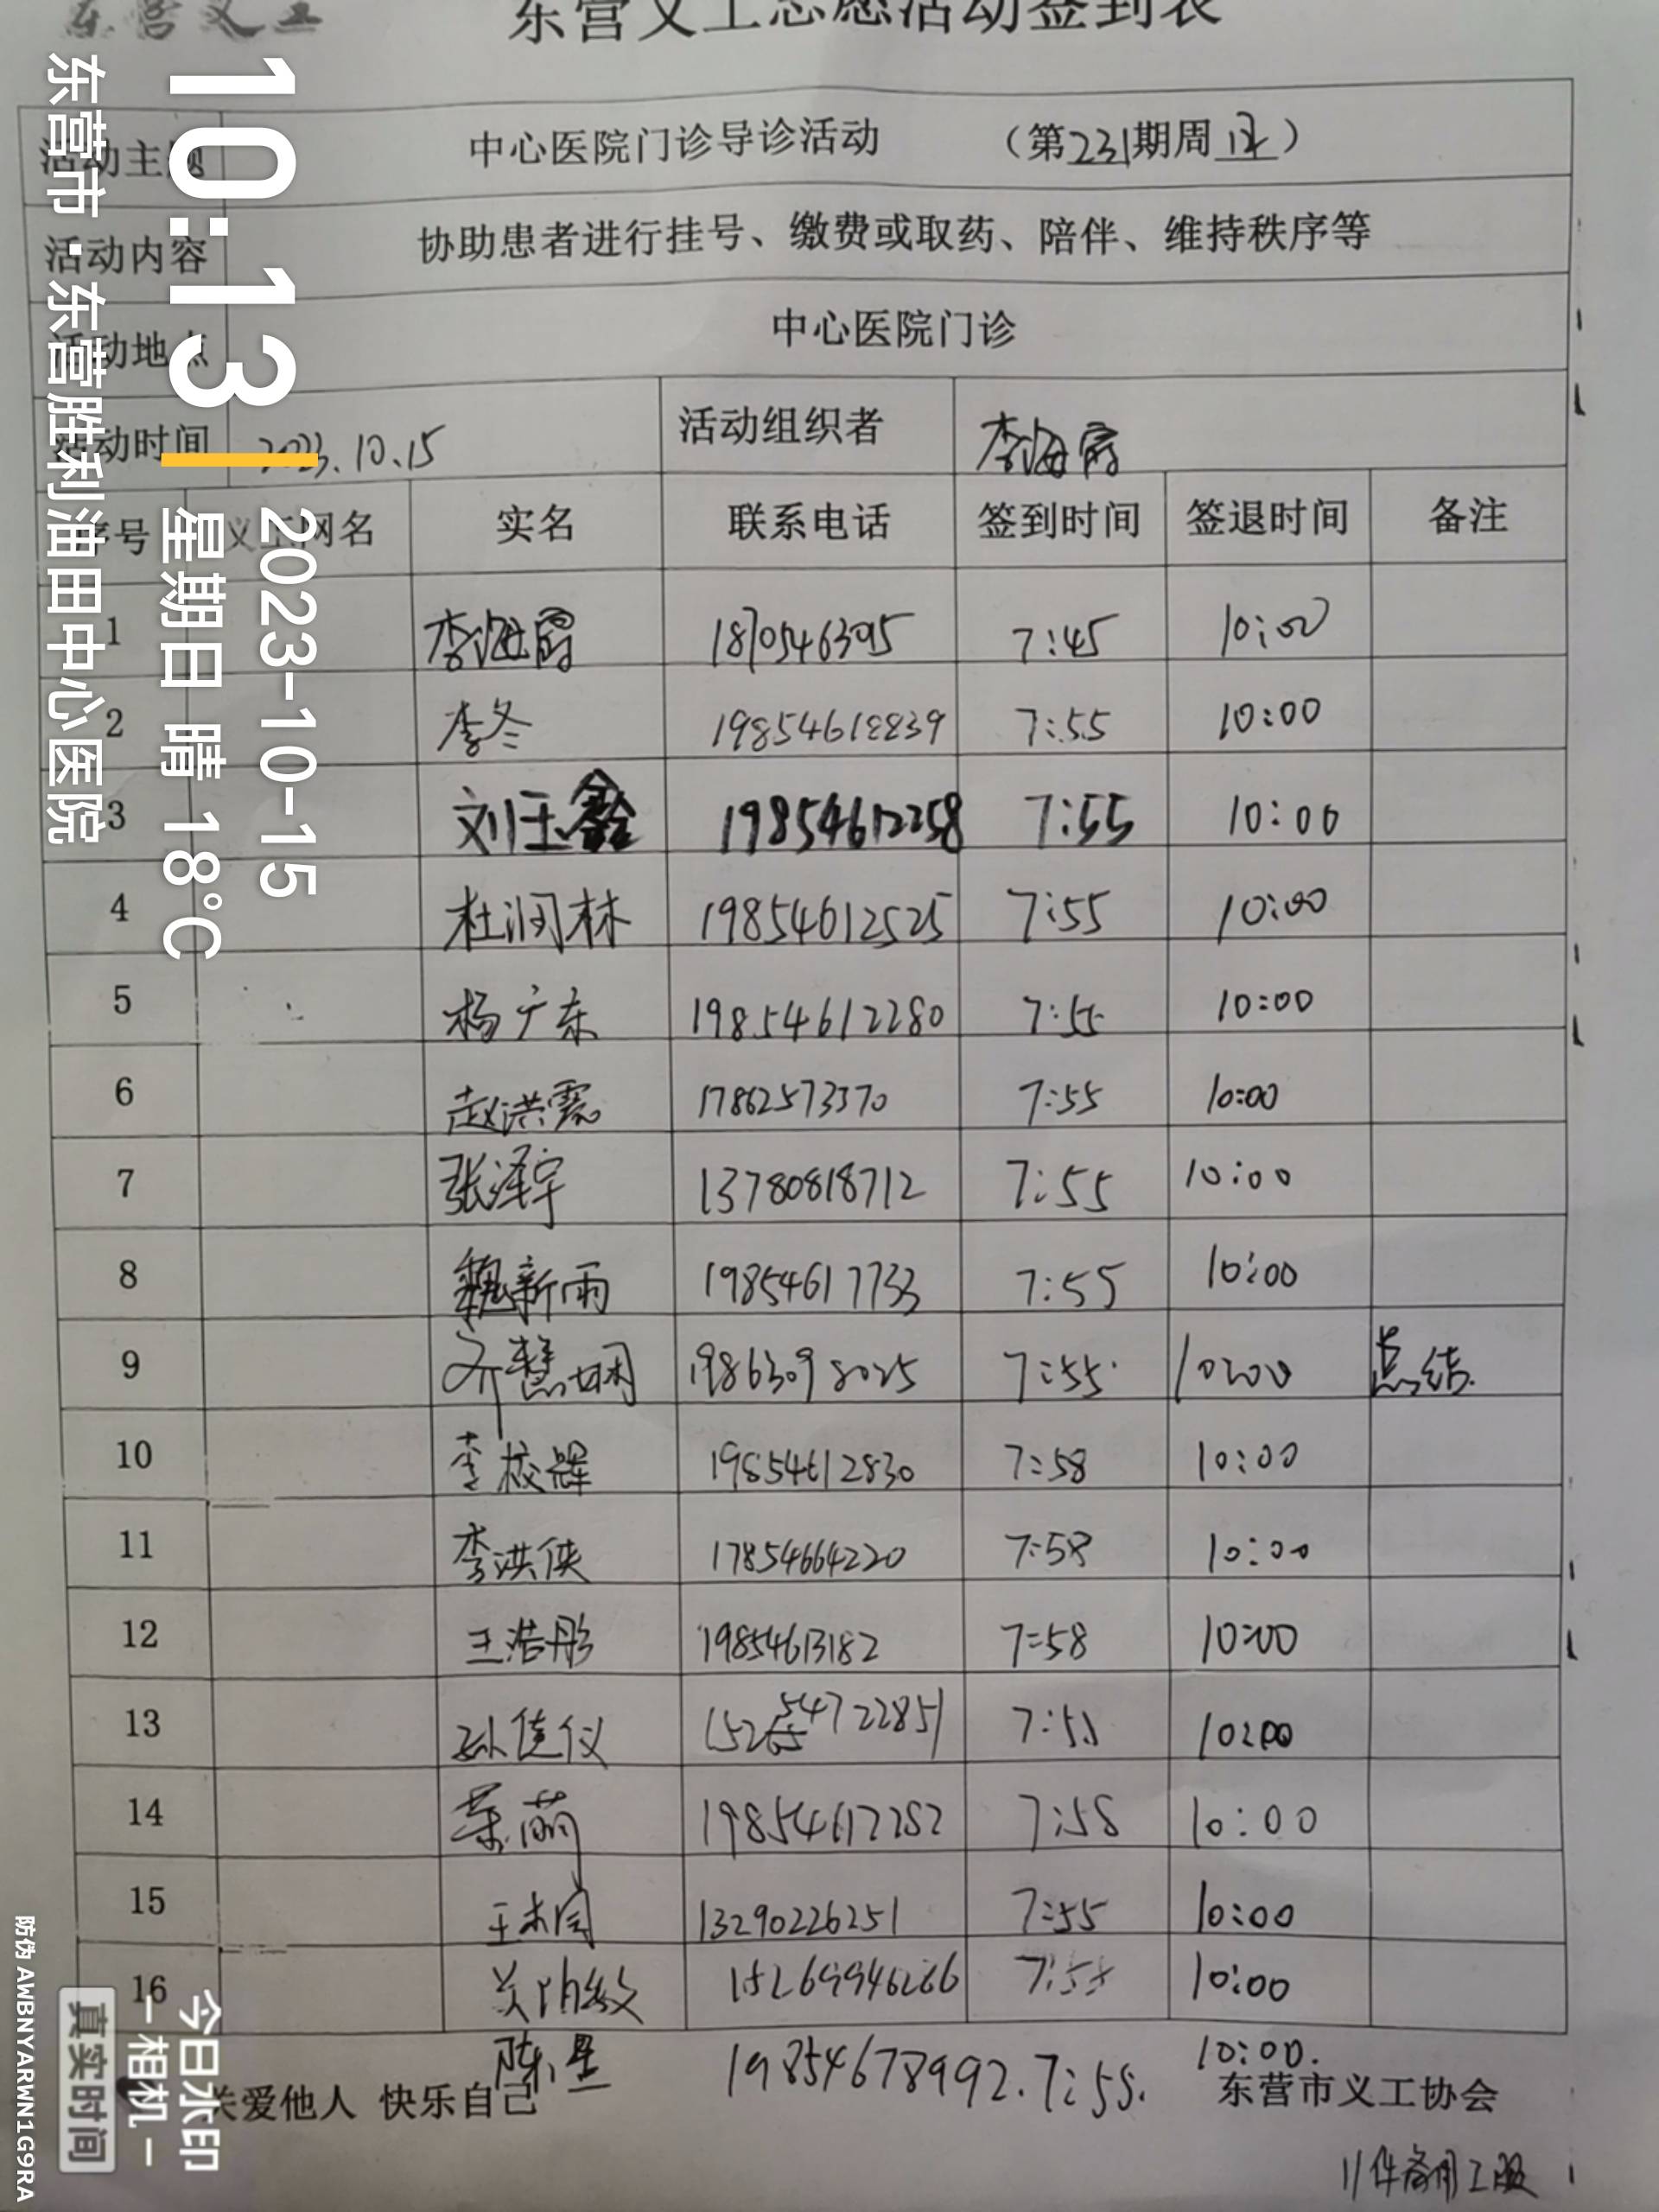 东营义工
东营义工志愿活动签到表
活动主题 中心医院门诊导诊活动 (第231期周)
活动内容 协助患者进行挂号、缴费或取药、陪伴、维持秩序等
活动地点 中心医院门诊
活动时间 2023.10.15 活动组织者 李海霞
序号 义工网名 实名 联系电话 签到时间 签退时间 备注
1 李海霞 7:45 10:00
2 李冬 19854618839 7:55 10:00
3 刘玉鑫 19854612258 7:55 10:00
4 杜润林 19854612525 7:55 10:00
5 杨广东 19854612280 7:55 10:00
6 赵洪霞 17862573370 7:55 10:00
7 张泽宇 13780818712 7:55 10:00
8 魏新雨 19854617733 7:55 10:00
9 齐慧娴 19863098025 7:55 10:00 总结
10 李校辉 19854612830 7:58 10:00
11 李洪侠 17854664220 7:58 10:00
12 王浩彤 19854613182 7:58 10:00
13 孙佳仪 7:55 10:00
14 荣萌 19854617282 7:58 10:00
15 13290226251 7:55 10:00
16 15269946266 7:55 10:00
陈星 19854678992. 7:55. 10:00.
关爱他人 快乐自己 东营市义工协会
11件备用工服
10:13
2023-10-15
星期日 晴 18°C
东营市·东营胜利油田中心医院
今日水印
-相机-
真实时间
防伪 AWBNYARWN1G9RA